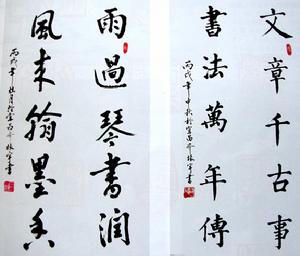 文章千古事
書法萬年傳
丙戌年中秋於宜昌
雨過琴書潤
風來翰墨香
丙戌年